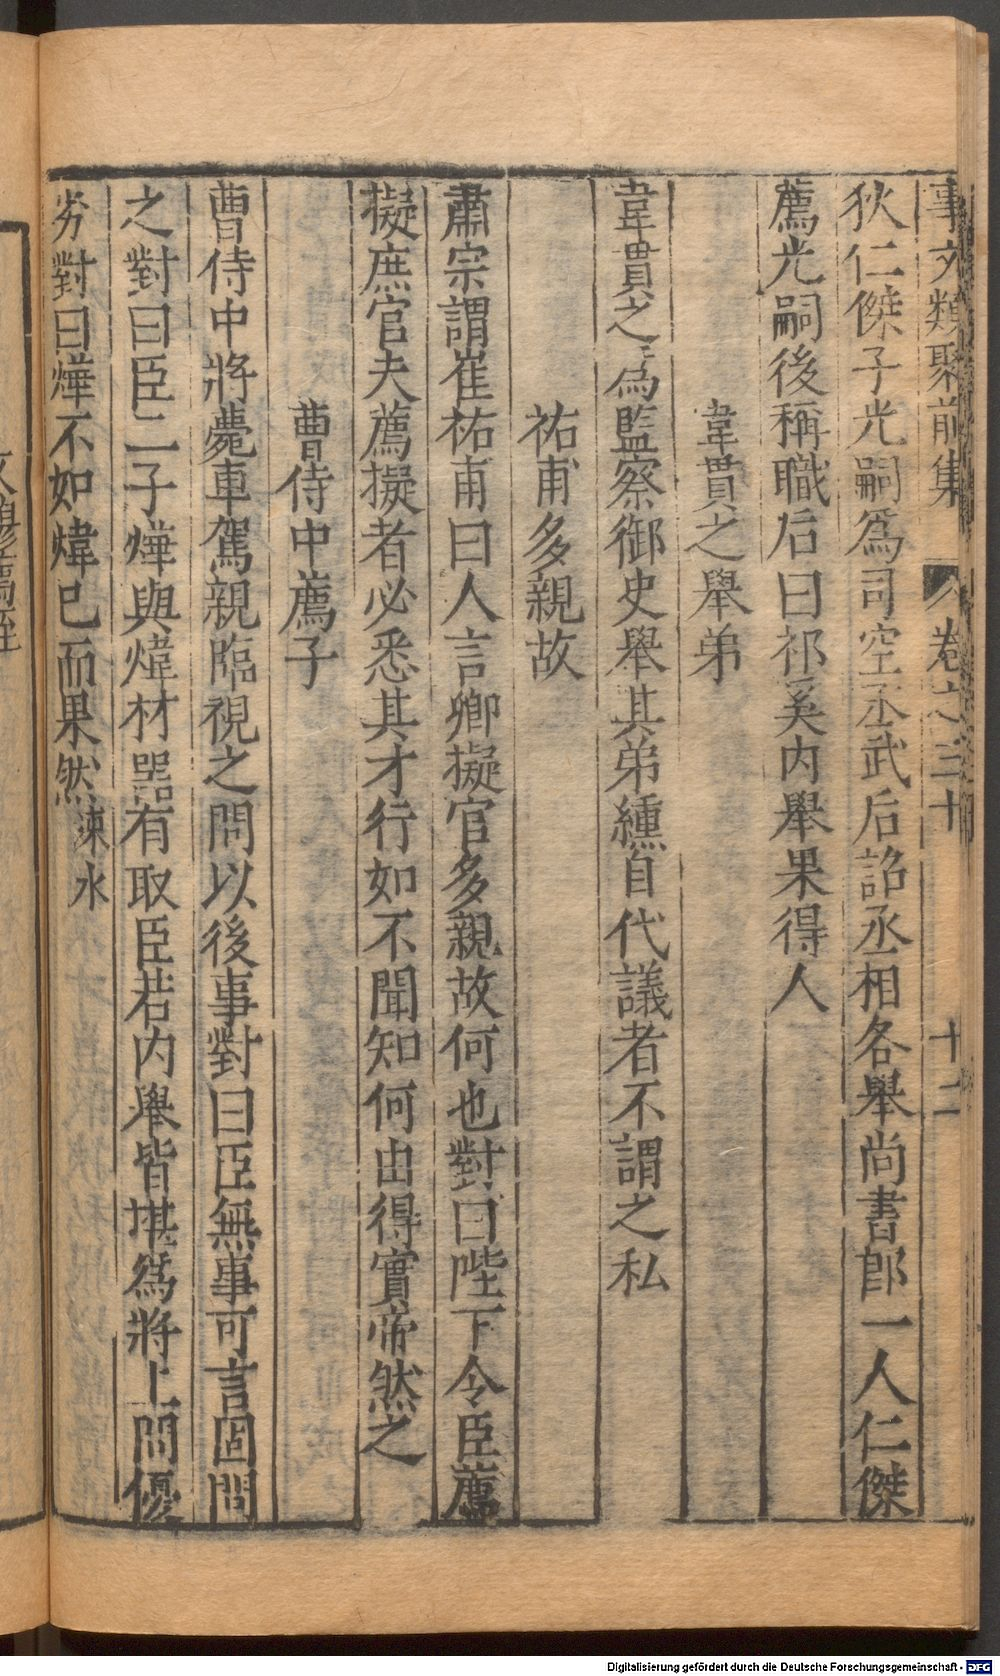 事文類聚前集 卷之三十 十二
狄仁傑子光嗣爲司空丞武后詔丞相各舉尚書郎一人仁傑
薦光嗣後稱職后曰祁奚内舉果得人
韋貫之舉弟
韋貫之爲監察御史舉其弟纁自代議者不謂之私
祐甫多親故
肅宗謂崔祐甫曰人言卿擬官多親故何也對曰陛下令臣薦
擬庶官夫薦擬者必悉其才行如不聞知何由得實帝然之
曹侍中薦子
曹侍中將薨車駕親臨視之問以後事對曰臣無事可言固問
之對曰臣二子燁與煒材器有取臣若内舉皆堪爲將上問優
劣對曰燁不如煒已而果然 涑水
Digitalisierung gefördert durch die Deutsche Forschungsgemeinschaft - DFG